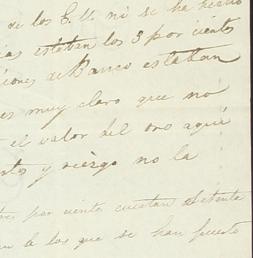 de los E. U. ni se ha hecho
estaban los 3 por ciento
ciones de Banco estaban
es muy claro que no
el valor del oro aquí
y riesgo no la
por ciento cuestan setenta
a los que se han puesto